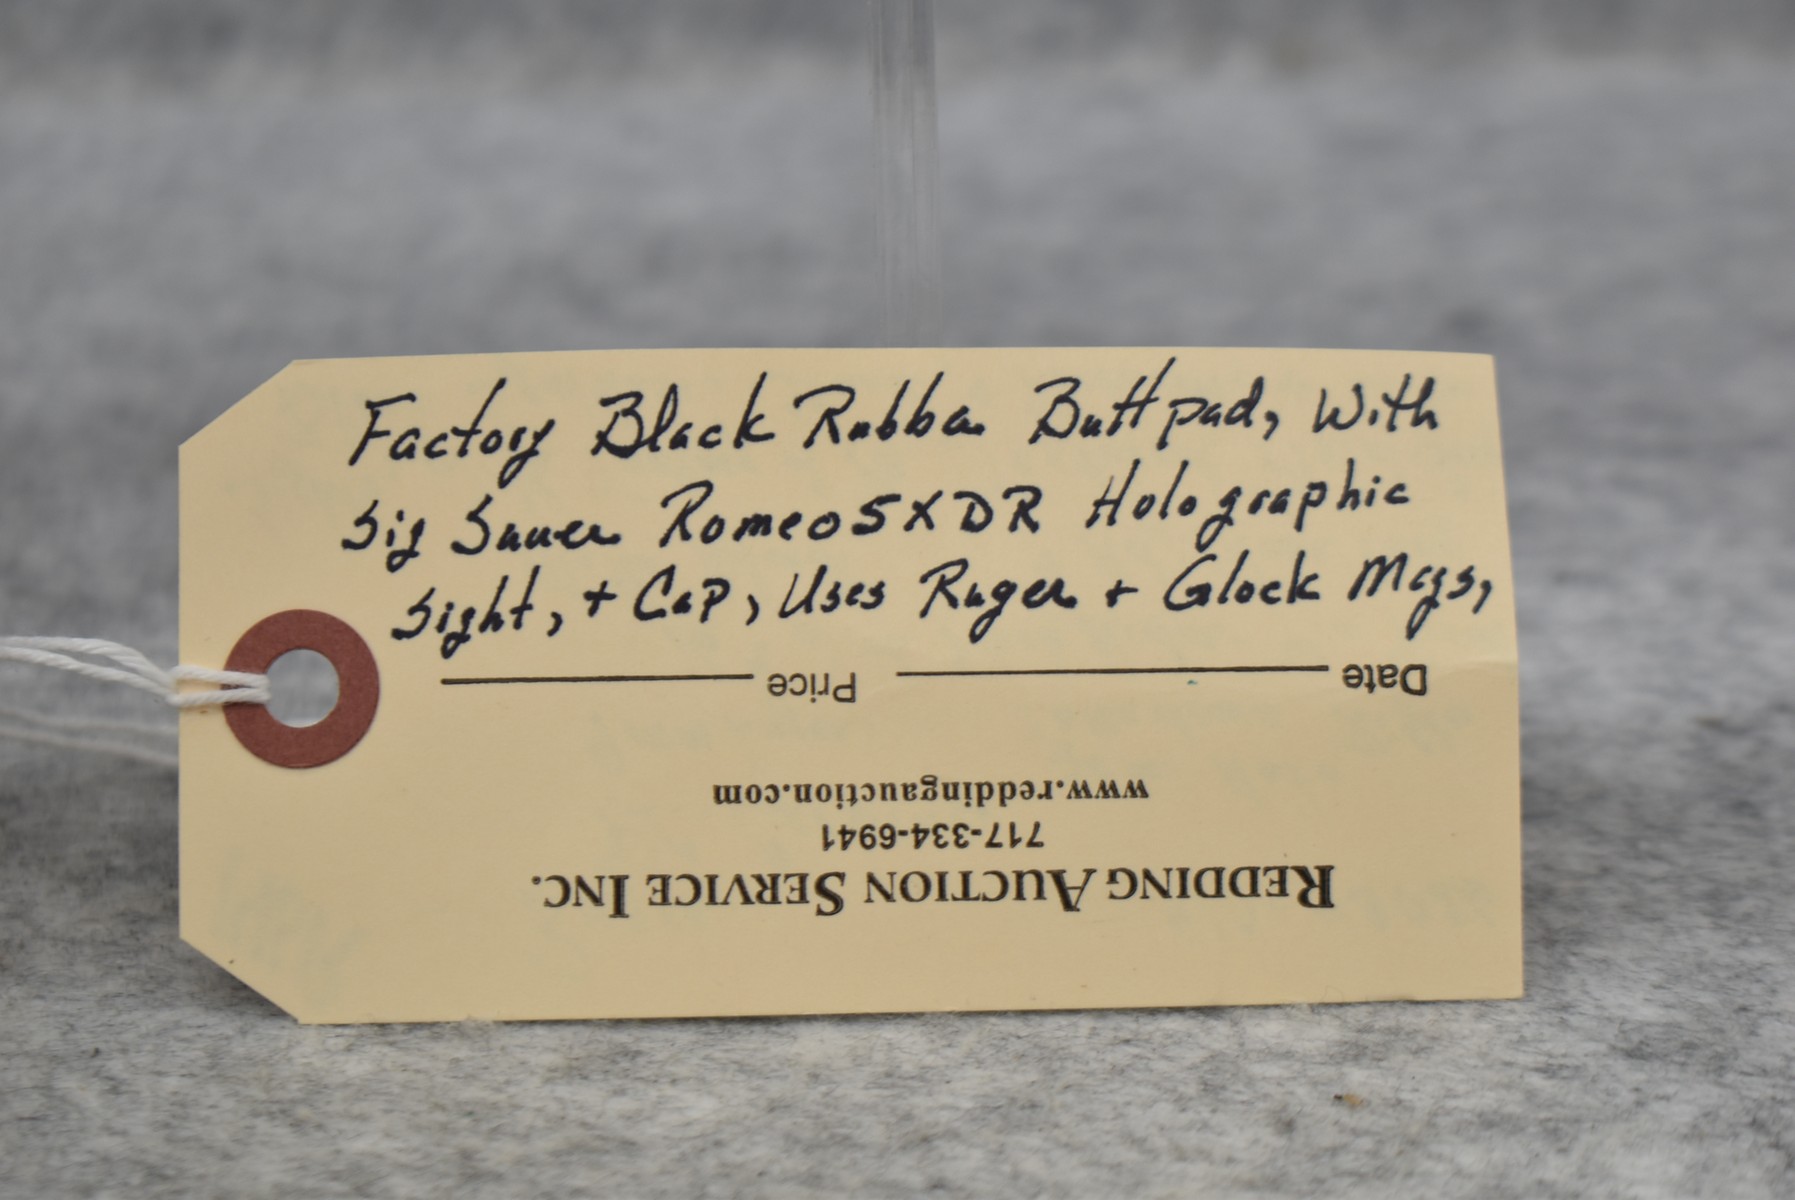 Factory Black Rubber Buttpad, With
Sig Sauer Romeo5XDR Holographic
Sight, + Cap, Uses Ruger + Glock Mags,
Date Price
www.reddingauction.com
717-334-6941
REDDING AUCTION SERVICE INC.